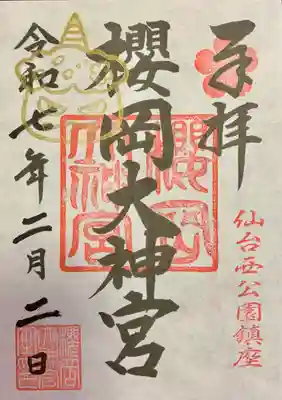 奉拝
仙台西公園鎮座
櫻岡大神宮
櫻岡大神宮
令和七年二月二日